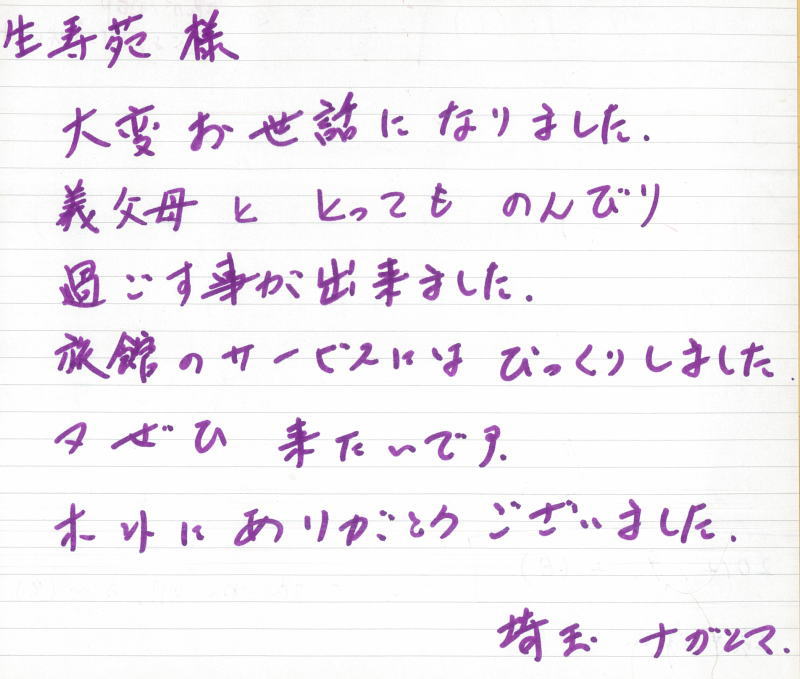 生寿苑 様
大変お世話になりました.
義父母と とっても のんびり
過ごす事が出来ました.
旅館のサービスにはびっくりしました.
又ぜひ 来たいです.
ホントにありがとうございました.
埼玉 ナガシマ.